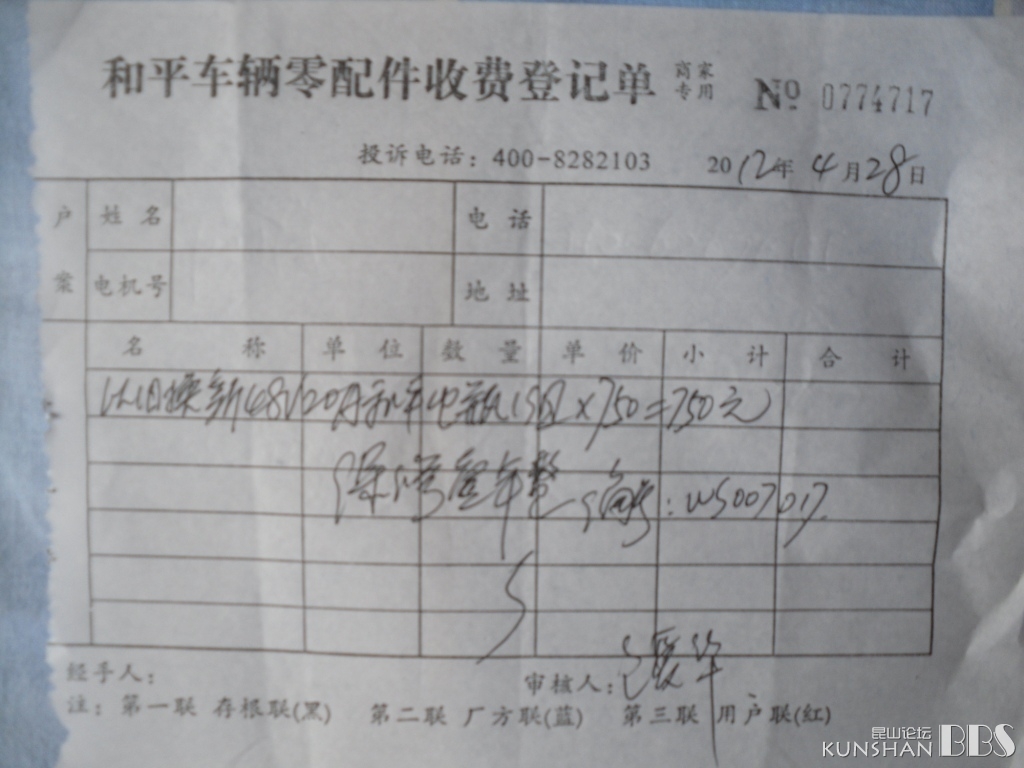 和平车辆零配件收费登记单 商家专用 Nº 0774717
投诉电话：400-8282103 2012年4月28日
户 姓名 电话
案 电机号 地址
名称 单位 数量 单价 小计 合计
以旧换新48V20A和平电瓶1组×750=750元
保 壹年整 编号：WS007017
经手人： 审核人：
注：第一联 存根联(黑) 第二联 厂方联(蓝) 第三联 用户联(红)
昆山论坛
KUNSHAN BBS